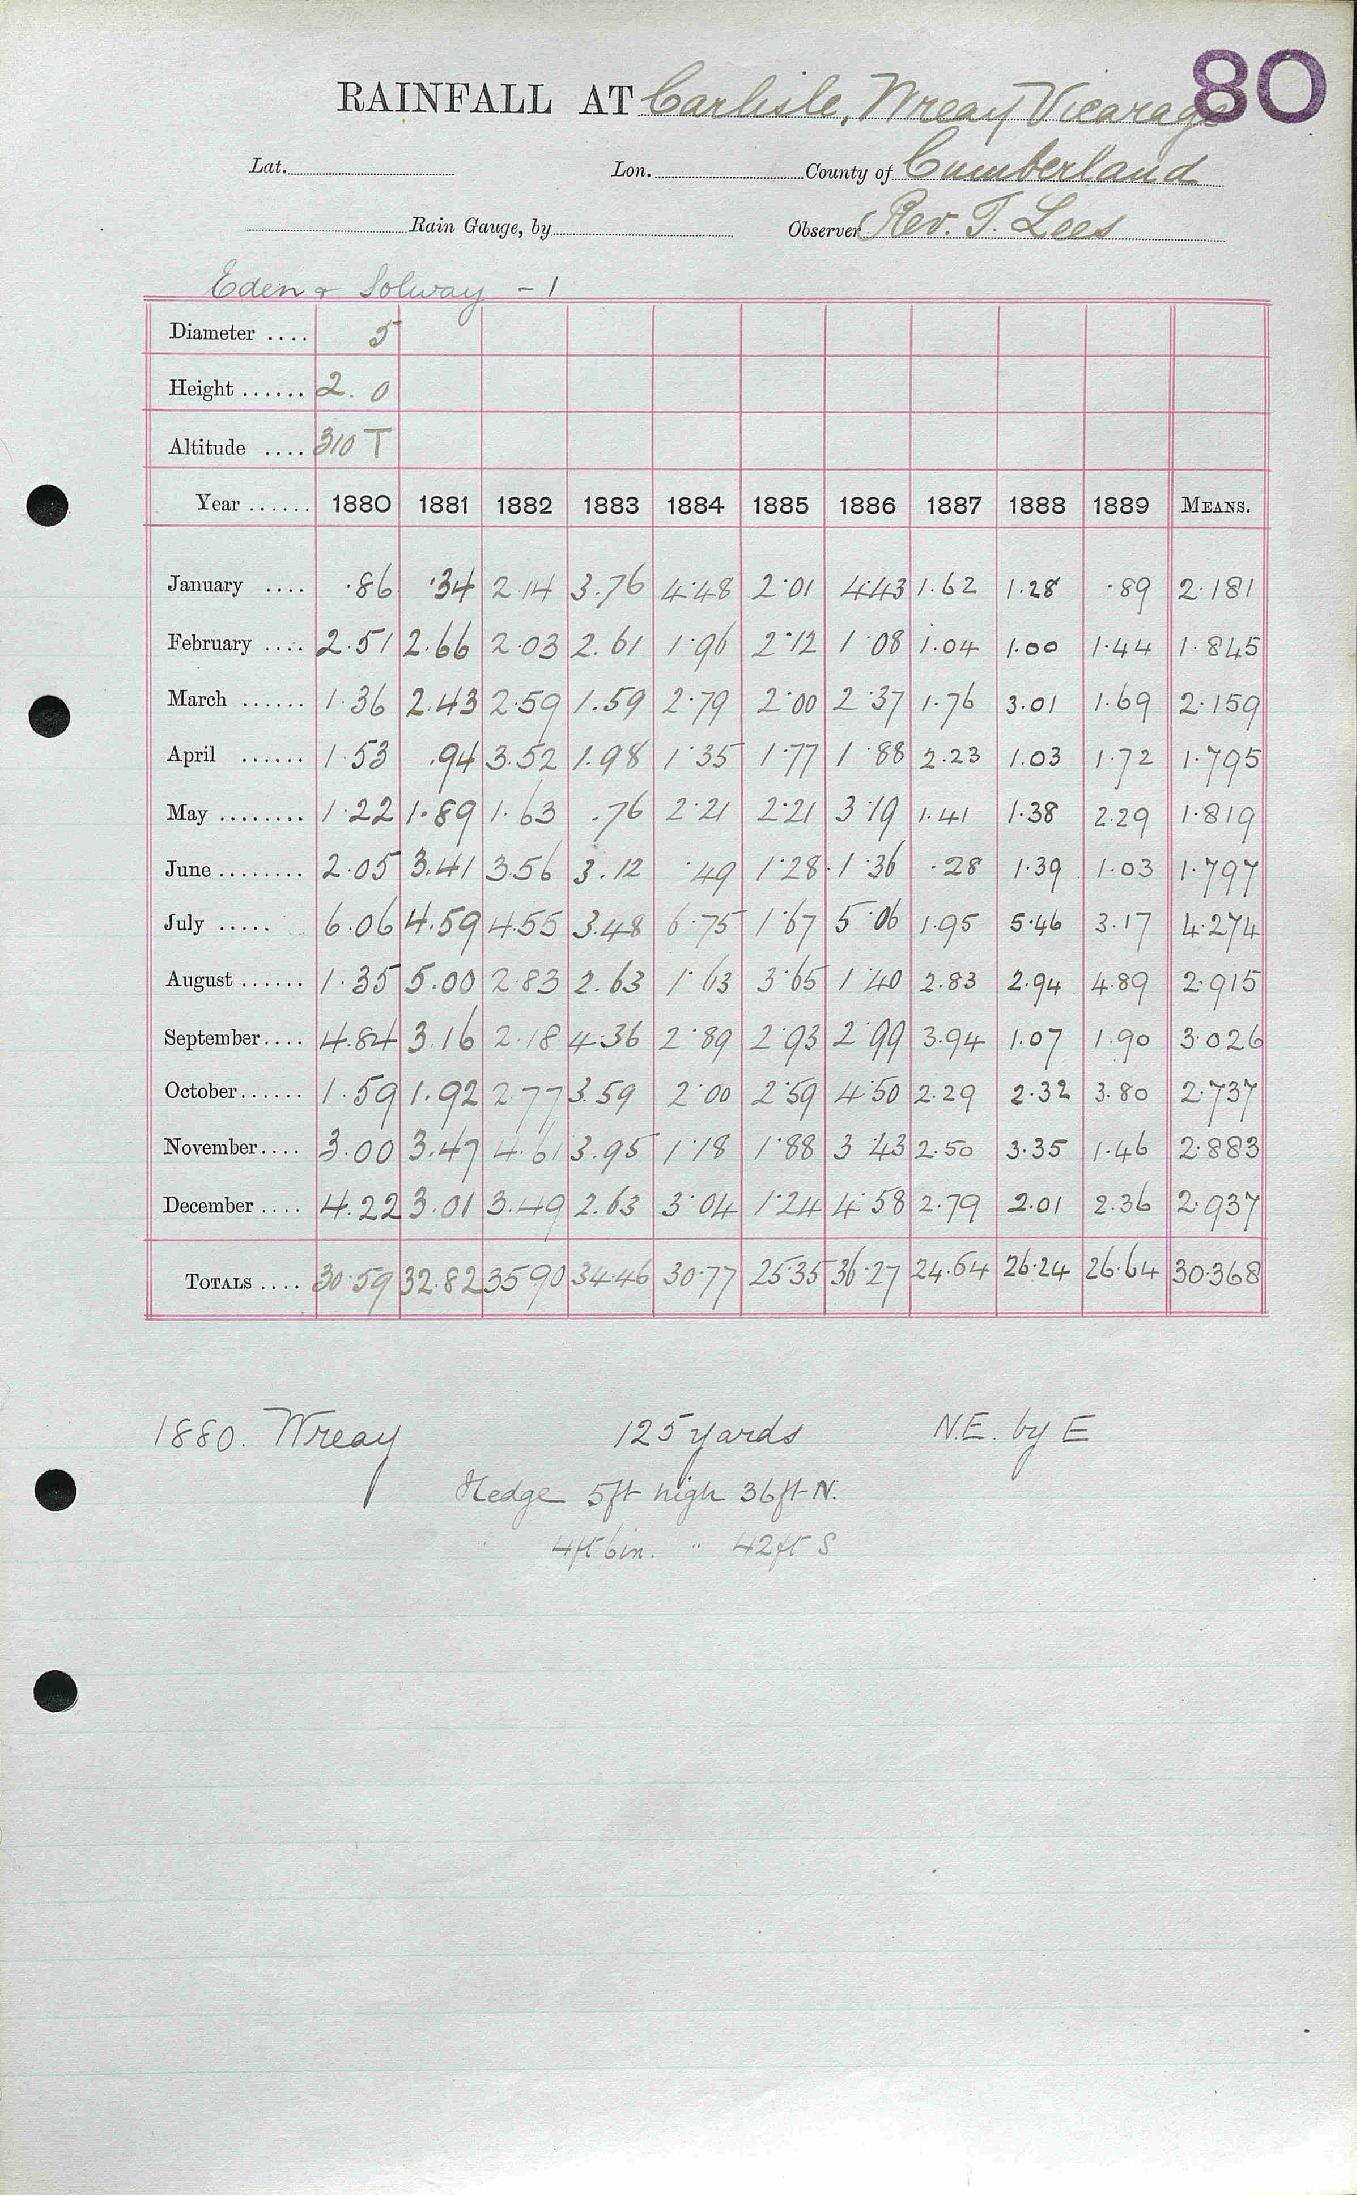 80
RAINFALL AT Carlisle, Wreay Vicarage
Lat. Lon. County of Cumberland
Rain Gauge, by Observer Rev. T. Lees
Eden & Solway - 1
Diameter .... 5
Height ...... 2. 0
Altitude .... 310 T
Year ...... 1880 1881 1882 1883 1884 1885 1886 1887 1888 1889 MEANS.
January .... .86 .34 2.14 3.76 4.48 2.01 4.43 1.62 1.28 .89 2.181
February .... 2.51 2.66 2.03 2.61 1.96 2.12 1.08 1.04 1.00 1.44 1.845
March ...... 1.36 2.43 2.59 1.59 2.79 2.00 2.37 1.76 3.01 1.69 2.159
April ...... 1.53 .94 3.52 1.98 1.35 1.77 1.88 2.23 1.03 1.72 1.795
May ........ 1.22 1.89 1.63 .76 2.21 2.21 3.19 1.41 1.38 2.29 1.819
June ........ 2.05 3.41 3.56 3.12 .49 1.28 1.36 .28 1.39 1.03 1.797
July ..... 6.06 4.59 4.55 3.48 6.75 1.67 5.06 1.95 5.46 3.17 4.274
August ...... 1.35 5.00 2.83 2.63 1.63 3.65 1.40 2.83 2.94 4.89 2.915
September.... 4.84 3.16 2.18 4.36 2.89 2.93 2.99 3.94 1.07 1.90 3.026
October...... 1.59 1.92 2.77 3.59 2.00 2.59 4.50 2.29 2.32 3.80 2.737
November.... 3.00 3.47 4.61 3.95 1.18 1.88 3.43 2.50 3.35 1.46 2.883
December .... 4.22 3.01 3.49 2.63 3.04 1.24 4.58 2.79 2.01 2.36 2.937
TOTALS .... 30.59 32.82 35.90 34.46 30.77 25.35 36.27 24.64 26.24 26.64 30.368
1880. Wreay 125 yards N.E. by E
Hedge 5ft high 36ft N.
" 4ft 6in. " 42ft S